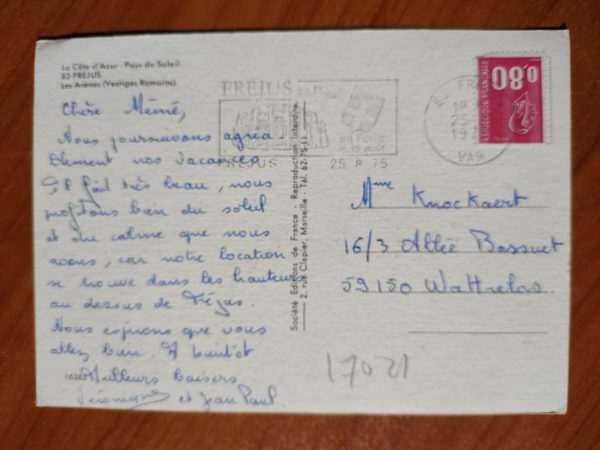 La Côte d'Azur Pays du Soleil
83-FREJUS
Les Arènes (Vestiges Romains)
Chère Mémé,
Nous poursuivons agréa-
blement nos vacances
Il fait très beau, nous
profitons bien du soleil
et du calme que nous
avons, car notre location
se trouve dans les hauteurs
au dessus de Fréjus.
Nous espérons que vous
allez bien. A bientôt
Meilleurs baisers
Véronique et Jean Paul
Société Editions de France - Reproduction interdite.
2, rue Clapier, Marseille - Tél. 62-75-11
FRÉJUS
FREJUS 25 8 75
83 FR
18
25-
19
VAR
0,80
REPUBLIQUE FRANÇAISE
Mme Knockaert
16/3 Allée Bossuet
59150 Wattrelos
17021